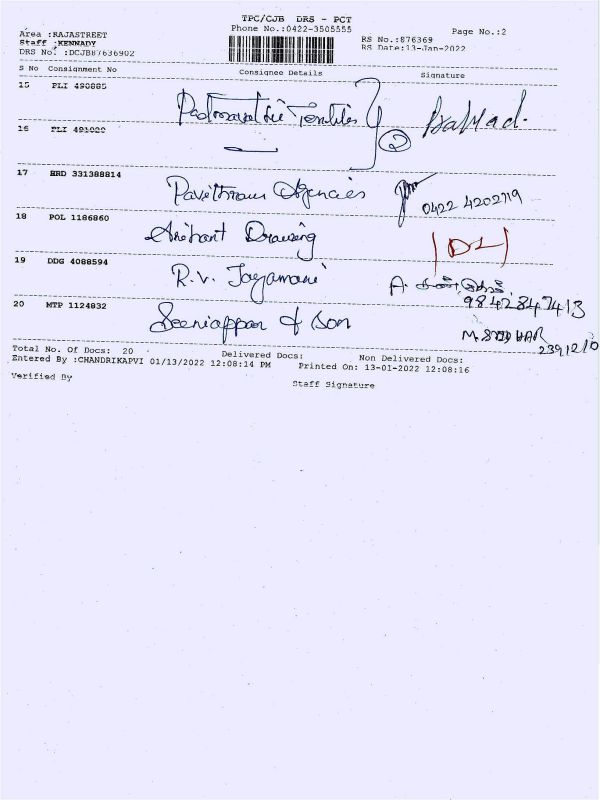 TPC/CJB DRS - PCT
Area :RAJASTREET
Phone No.:0422-3505555
Page No.:2
Staff :KENNADY
RS No.:876369
DRS No. :DCJB87636902
RS Date:13-Jan-2022
S No Consignment No Consignee Details Signature
15 PLI 490885 Padmavathi Textiles
16 PLI 491020 2
17 HRD 331388814 Agencies 0422 4202719
18 POL 1186860 Arihant Drawing DL
19 DDG 4088594 R.V. Jayamani A.
9842847413
20 MTP 1124832 Seeniappan & Son
Total No. Of Docs: 20 Delivered Docs: Non Delivered Docs:
Entered By :CHANDRIKAPVI 01/13/2022 12:08:14 PM Printed On: 13-01-2022 12:08:16
Verified By
Staff Signature